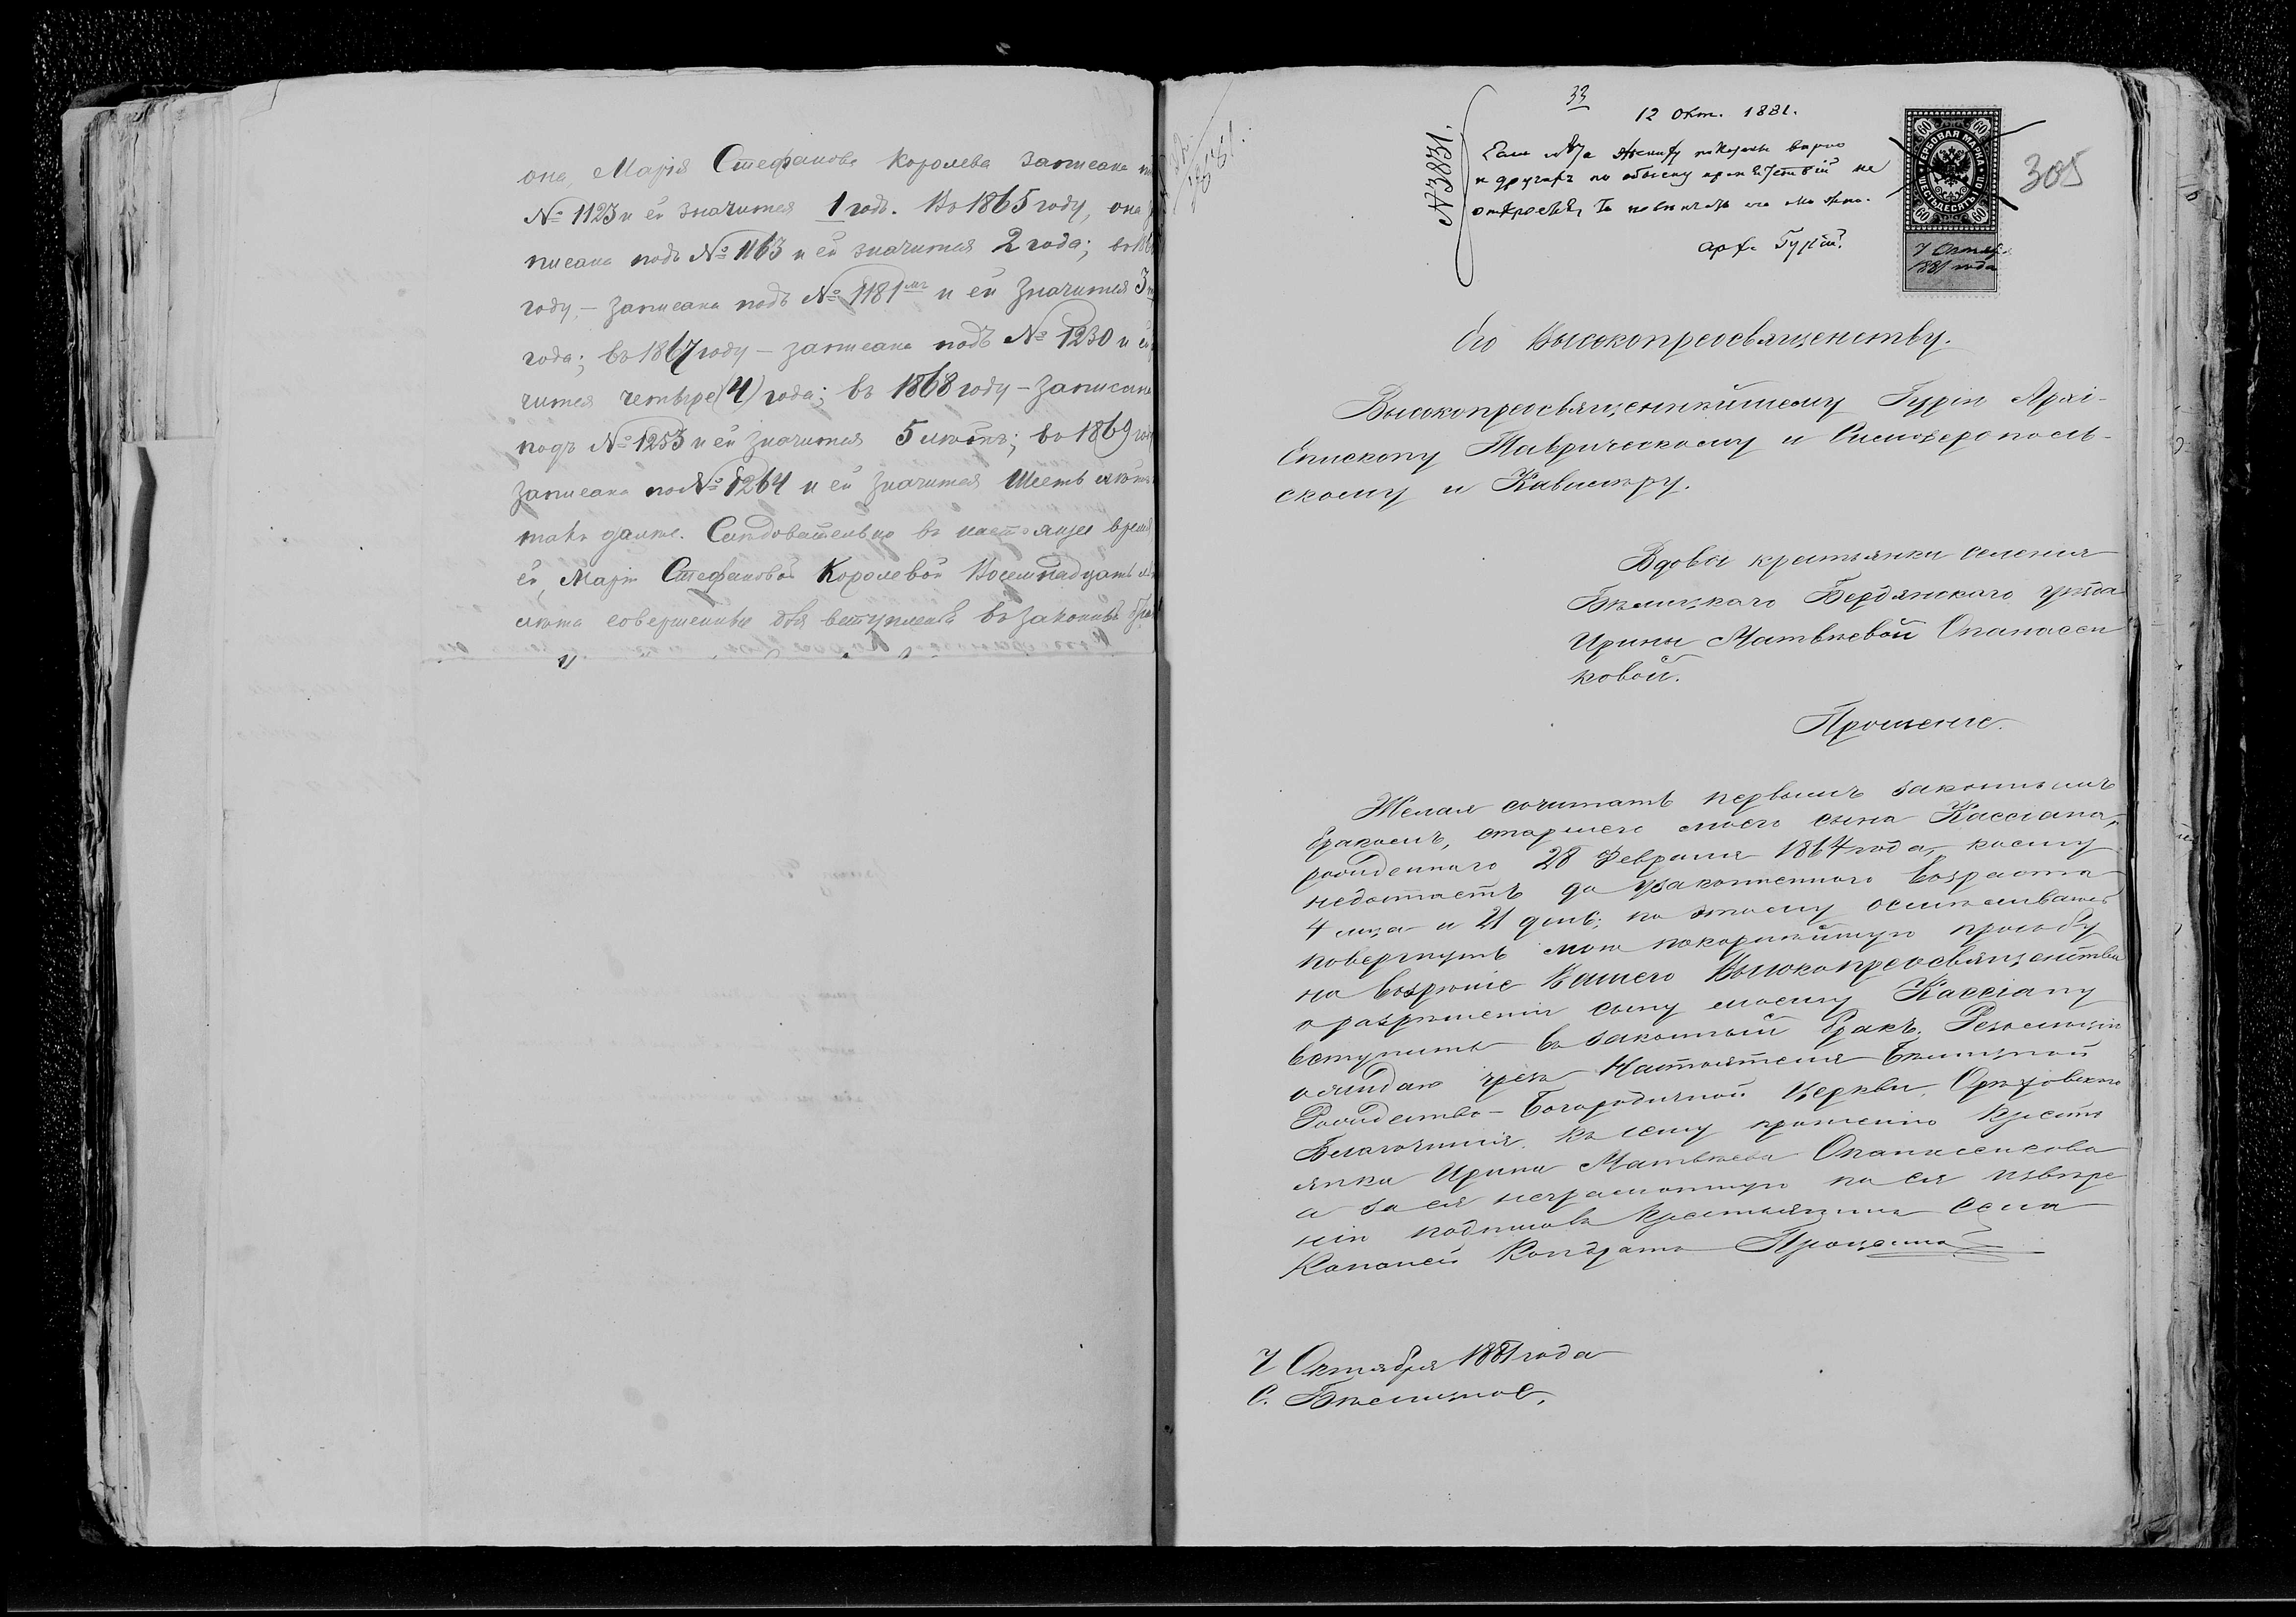 она, Марія Стефанова Королева записана
№ 1123 и ей значится 1 годъ. Въ 1865 году, она
писана подъ № 1163 и ей значится 2 года; въ 186
году, – записана подъ № 1181мъ и ей значится 3
года; въ 1867 году – записана подъ № 1230 и ей
чится четыре (4) года; въ 1868 году – записана
подъ № 1253 и ей значится 5 лѣтъ; въ 1869 году
записана по № 1264 и ей значится шесть лѣтъ
такъ далѣе. Слѣдовательно въ настоящее время
ей, Маріи Стефановой Королевой Восемнадцать
лѣта совершенные для вступленія въ законный
33
12 Окт. 1881.
№ 3831.
Если лѣта жениху показаны вѣрно
и другихъ по обыску препятствій не
откроется, то повѣнчать его можно.
Арх. Гурій.
305
ГЕРБОВАЯ МАРКА
ШЕСТЬДЕСЯТЪ КОП.
60 60 60 60
7 Октяб.
1881 года
Его Высокопреосвященству.
Высокопреосвященнѣйшему Гурію Архі-
Епископу Таврическому и Симферополь-
скому и Кавалеру.
Вдовы крестьянки селенія
Бѣлицкаго Бердянскаго уѣзда
Ирины Матвѣевой Опанасен
ковой.
Прошеніе.
Желая сочитать первымъ законнымъ
бракомъ, старшего моего сына Кассіана,
рожденнаго 28 Февраля 1864 года, коему
недостаетъ до узаконенного возраста
4 мца и 21 день; по этому осмѣливаюсь
повергнуть мою покорнѣйшую прозьбу
на возрѣніе Вашего Высокопреосвященства
о разрѣшеніи сыну моему Кассіану
вступить въ законный бракъ. Резолюціи
ожидаю чрезъ Настоятеля
Рождество-Богородичной Церкви, Орѣховскаго
Благочинія. Къ сему прошенію Кресть
янка Ирина Матвѣева Опанасенкова
а за ея неграмотную по ея
нію подписалъ Крестьянинъ Села
Копаней Кондратъ Проценко
7 Октября 1881 года
С.